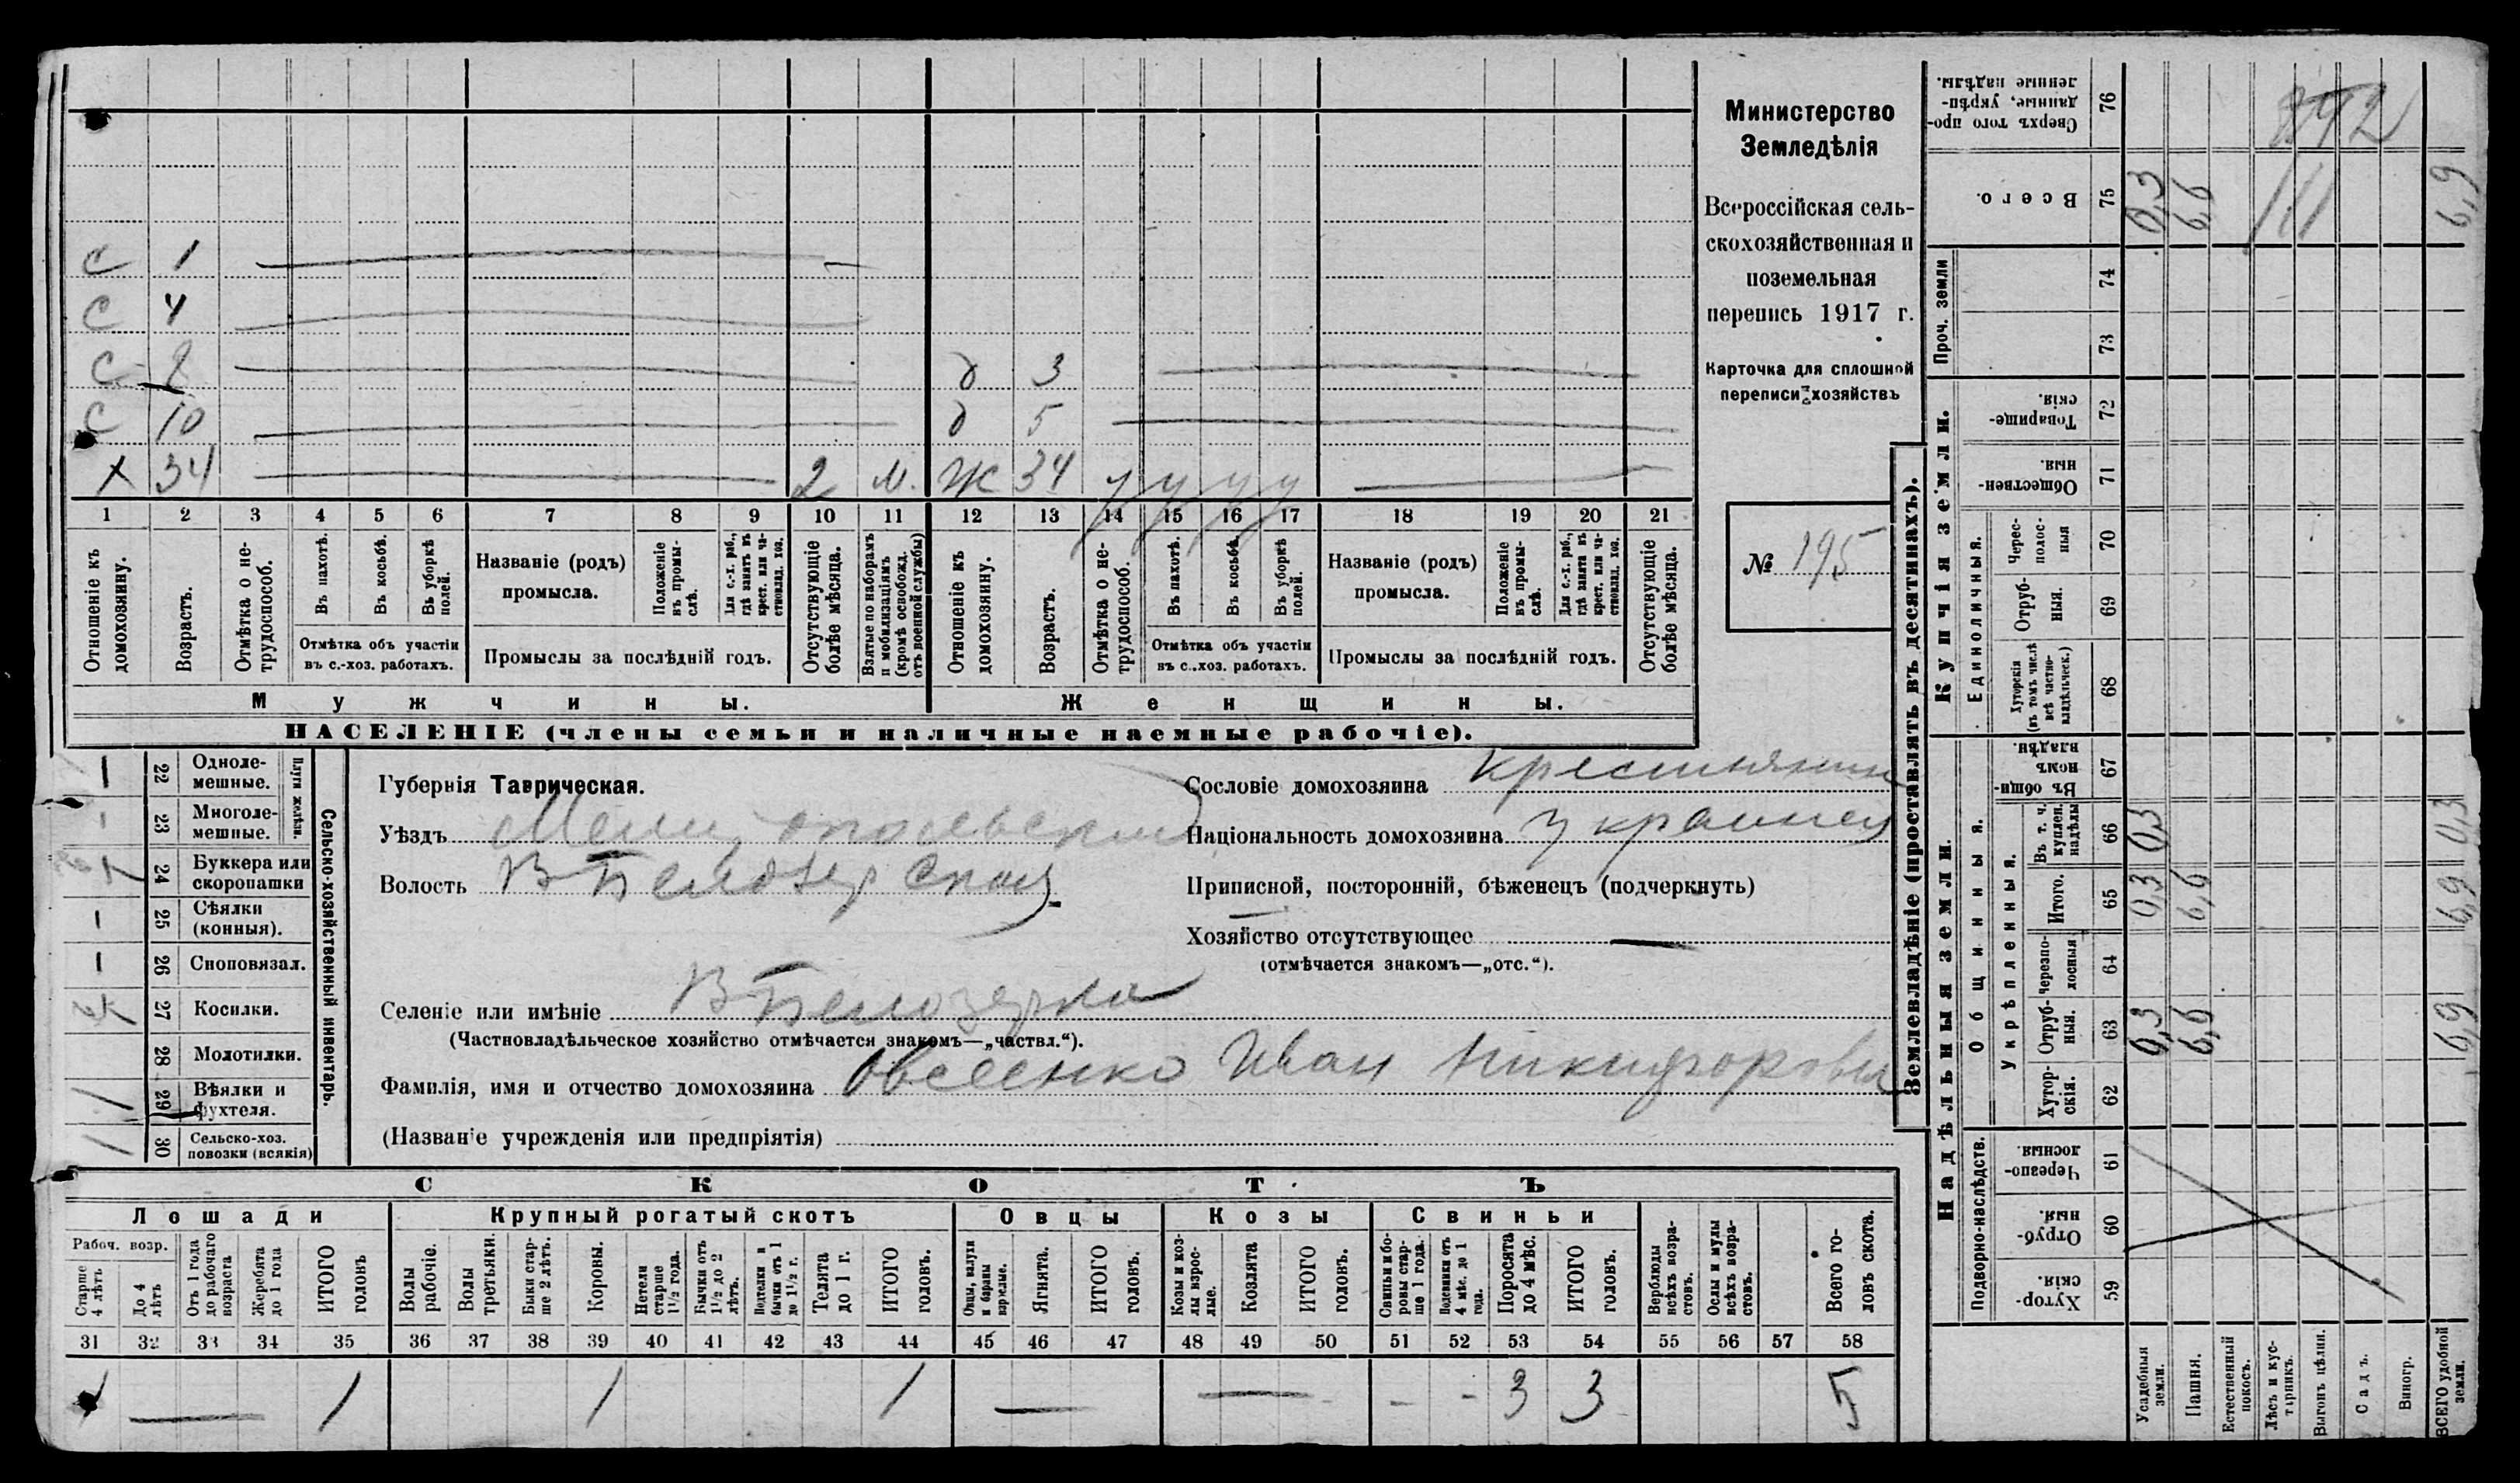 с 1
с 4
с 8 д 3
с 10 д 5
х 34 2 м. Ж 34 у у у у
1 2 3 4 5 6 7 8 9 10 11 12 13 14 15 16 17 18 19 20 21
Отношеніе къ домохозяину.
Возрастъ.
Отмѣтка о не-трудоспособ.
Въ пахотѣ.
Въ косьбѣ.
Въ уборкѣ полей.
Отмѣтка объ участіи
въ с.-хоз. работахъ.
Названіе (родъ)
промысла.
Положеніе въ промы-слѣ.
Для с.-х. раб., гдѣ занятъ въ крест. или ча-стновлад. хоз.
Промыслы за послѣдній годъ.
Отсутствующіе болѣе мѣсяца.
Взятые по наборамъ и мобилизаціямъ (кромѣ освобожд. отъ военной службы)
Отношеніе къ домохозяину.
Возрастъ.
Отмѣтка о не-трудоспособ.
Въ пахотѣ.
Въ косьбѣ.
Въ уборкѣ полей.
Отмѣтка объ участіи
въ с.-хоз. работахъ.
Названіе (родъ)
промысла.
Положеніе въ промы-слѣ.
Для с.-х. раб., гдѣ занята въ крест. или ча-стновлад. хоз.
Промыслы за послѣдній годъ.
Отсутствующіе болѣе мѣсяца.
Мужчины. Женщины.
НАСЕЛЕНІЕ (члены семьи и наличные наемные рабочіе).
Министерство
Земледѣлія
Всероссійская сель-
скохозяйственная и
поземельная
перепись 1917 г.
Карточка для сплошной
переписи хозяйствъ
№ 195
22 Одноле-мешные.
23 Многоле-мешные.
Плуги желѣзн.
24 Буккера или скоропашки
25 Сѣялки (конныя).
26 Сноповязал.
27 Косилки.
28 Молотилки.
29 Вѣялки и фухтеля.
30 Сельско-хоз. повозки (всякія)
Сельско-хозяйственный инвентарь.
Губернія Таврическая.
Уѣздъ Мелитопольский
Волость В-Белозерская
Селеніе или имѣніе В Белозерка
(Частновладѣльческое хозяйство отмѣчается знакомъ—„частвл.“).
Фамилія, имя и отчество домохозяина Овсеенко Иван Никифорович
(Названіе учрежденія или предпріятія)
Сословіе домохозяина крестьянин
Національность домохозяина украинец
Приписной, посторонній, бѣженецъ (подчеркнуть)
Хозяйство отсутствующее
(отмѣчается знакомъ—„отс.“).
СКОТЪ
Лошади Крупный рогатый скотъ Овцы Козы Свиньи
Рабоч. возр.
Старше 4 лѣтъ
До 4 лѣтъ
Отъ 1 года до рабочаго возраста
Жеребята до 1 года
ИТОГО головъ
Волы рабочіе.
Волы третьяки.
Быки стар-ше 2 лѣтъ.
Коровы.
Нетели старше 1½ года.
Бычки отъ 1½ до 2 лѣтъ.
Подтелки и бычки отъ 1 до 1½ г.
Телята до 1 г.
ИТОГО головъ.
Овцы, валухи и бараны взрослые.
Ягнята.
ИТОГО головъ.
Козы и коз-лы взрос-лые.
Козлята
ИТОГО головъ.
Свиньи и бо-ровы стар-ше 1 года.
Подсвинки отъ 4 мѣс. до 1 года.
Поросята до 4 мѣс.
ИТОГО головъ.
Верблюды всѣхъ возра-стовъ.
Ослы и мулы всѣхъ возра-стовъ.
Всего го-ловъ скота.
31 32 33 34 35 36 37 38 39 40 41 42 43 44 45 46 47 48 49 50 51 52 53 54 55 56 57 58
1 1 1 1 3 3 5
Землевладѣніе (проставлять въ десятинахъ).
Надѣльныя земли. Купчія земли.
Подворно-наслѣдств.
Общинныя.
Укрѣпленныя.
Единоличныя.
Проч. земли
Хутор-скія. 59
Отруб-ныя. 60
Черезпо-лосныя 61
Хутор-скія. 62
Отруб-ныя. 63 0,3 6,6 6,9
Черезпо-лосныя 64
Итого. 65 0,3 6,6 6,9
Въ т. ч. куплен. надѣлы 66 0,3 0,3
Въ общин-номъ владѣн. 67
Хуторскія (въ томъ числѣ всѣ частно-владѣльческ.) 68
Отруб-ныя. 69
Черес-полос-ныя 70
Обществен-ныя. 71
Товарище-скія. 72
73
74
Всего. 75 0,3 6,6 6,9
Сверхъ того про-данные, укрѣп-ленные надѣлы. 76
Усадебныя земли.
Пашня.
Естественный покосъ.
Лѣсъ и кус-тарникъ.
Выгонъ цѣлин.
Садъ.
Виногр.
ВСЕГО удобной земли.